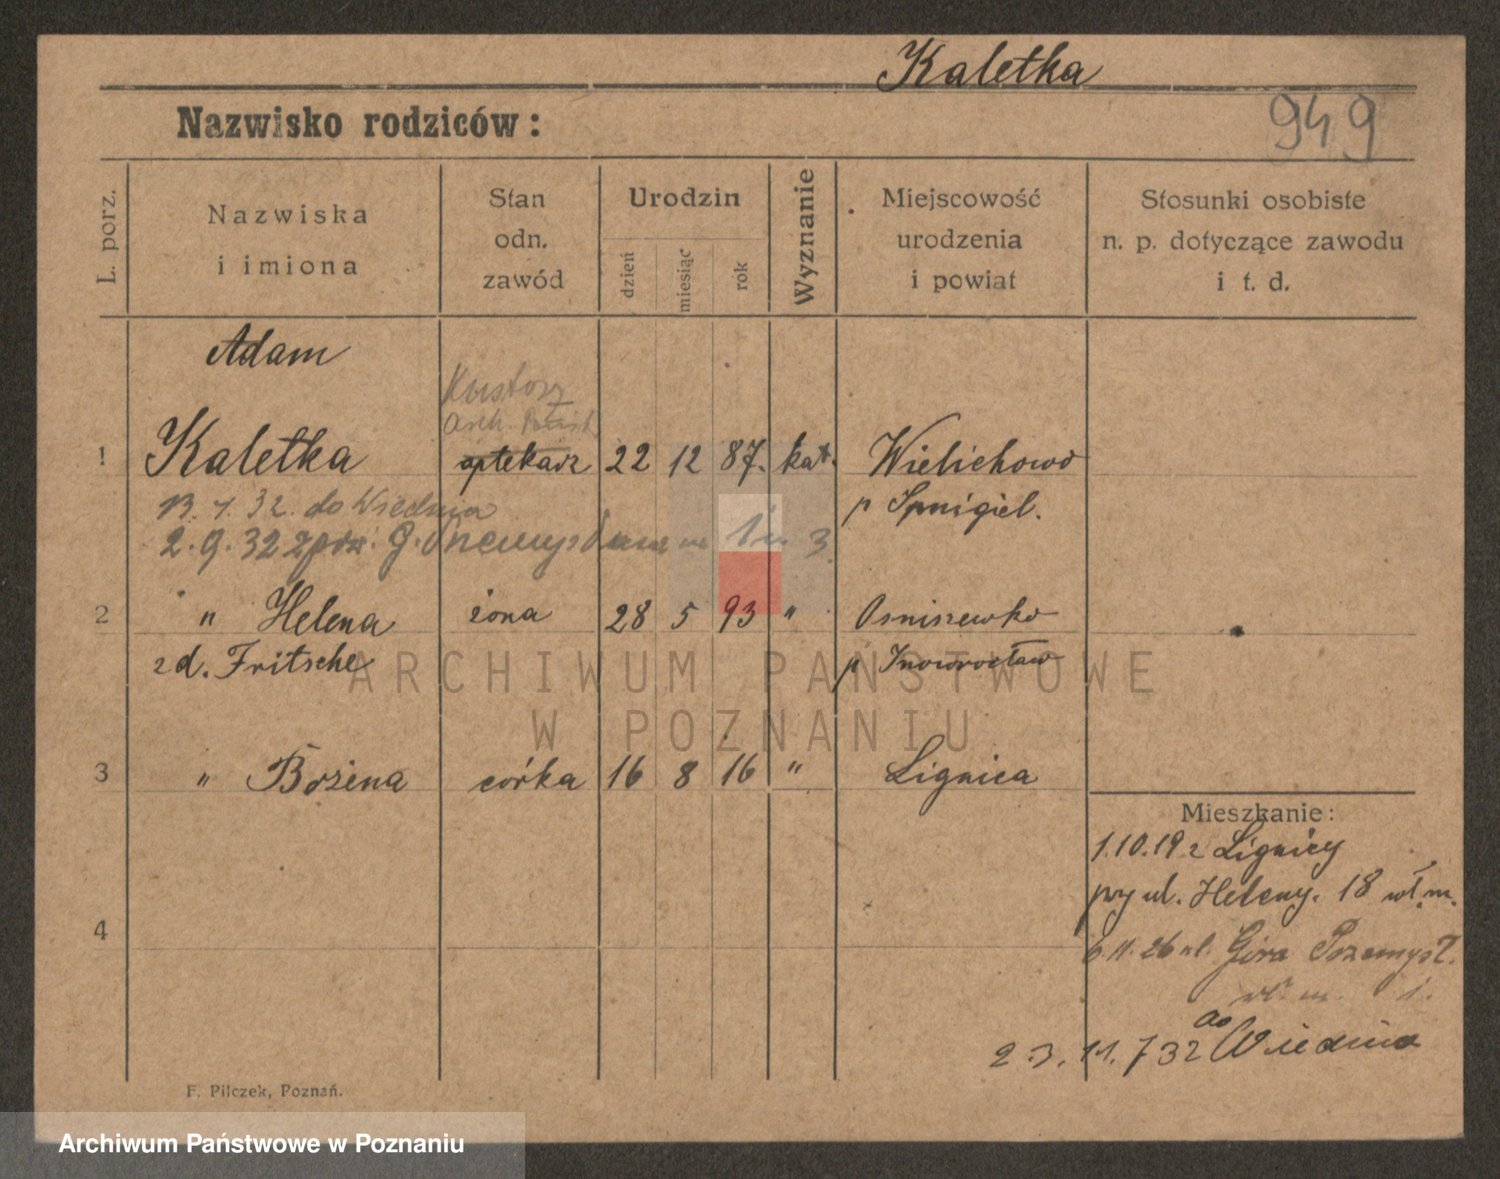 Kaletka
Nazwisko rodziców:
949
L. porz.
Nazwiska
i imiona
Stan
odn.
zawód
Urodzin
dzień
miesiąc
rok
Wyznanie
Miejscowość
urodzenia
i powiat
Stosunki osobiste
n. p. dotyczące zawodu
i t. d.
Adam
Kustosz
Arch.
1 Kaletka aptekarz 22 12 87. kat. Wielichowo
p Śmigiel.
do Wiednia
2.9.32 z
2 " Helena żona 28 5 93 " Osniszewko
z d. Fritsche p Inowrocław
3 " Bożena córka 16 8 16 " Lignica
4
Mieszkanie:
1.10.19 z Lignicy
przy ul. Heleny. 18 wł. m.
6.11.26 ul. Góra Przemysł.
wł. m. 1.
do Wiednia
F. Pilczek, Poznań.
ARCHIWUM PAŃSTWOWE
W POZNANIU
Archiwum Państwowe w Poznaniu